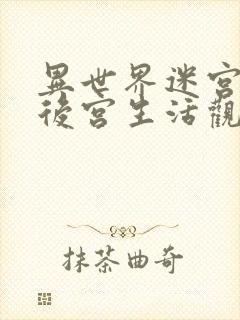 異世界迷宮
後宮生活觀
抹茶曲奇